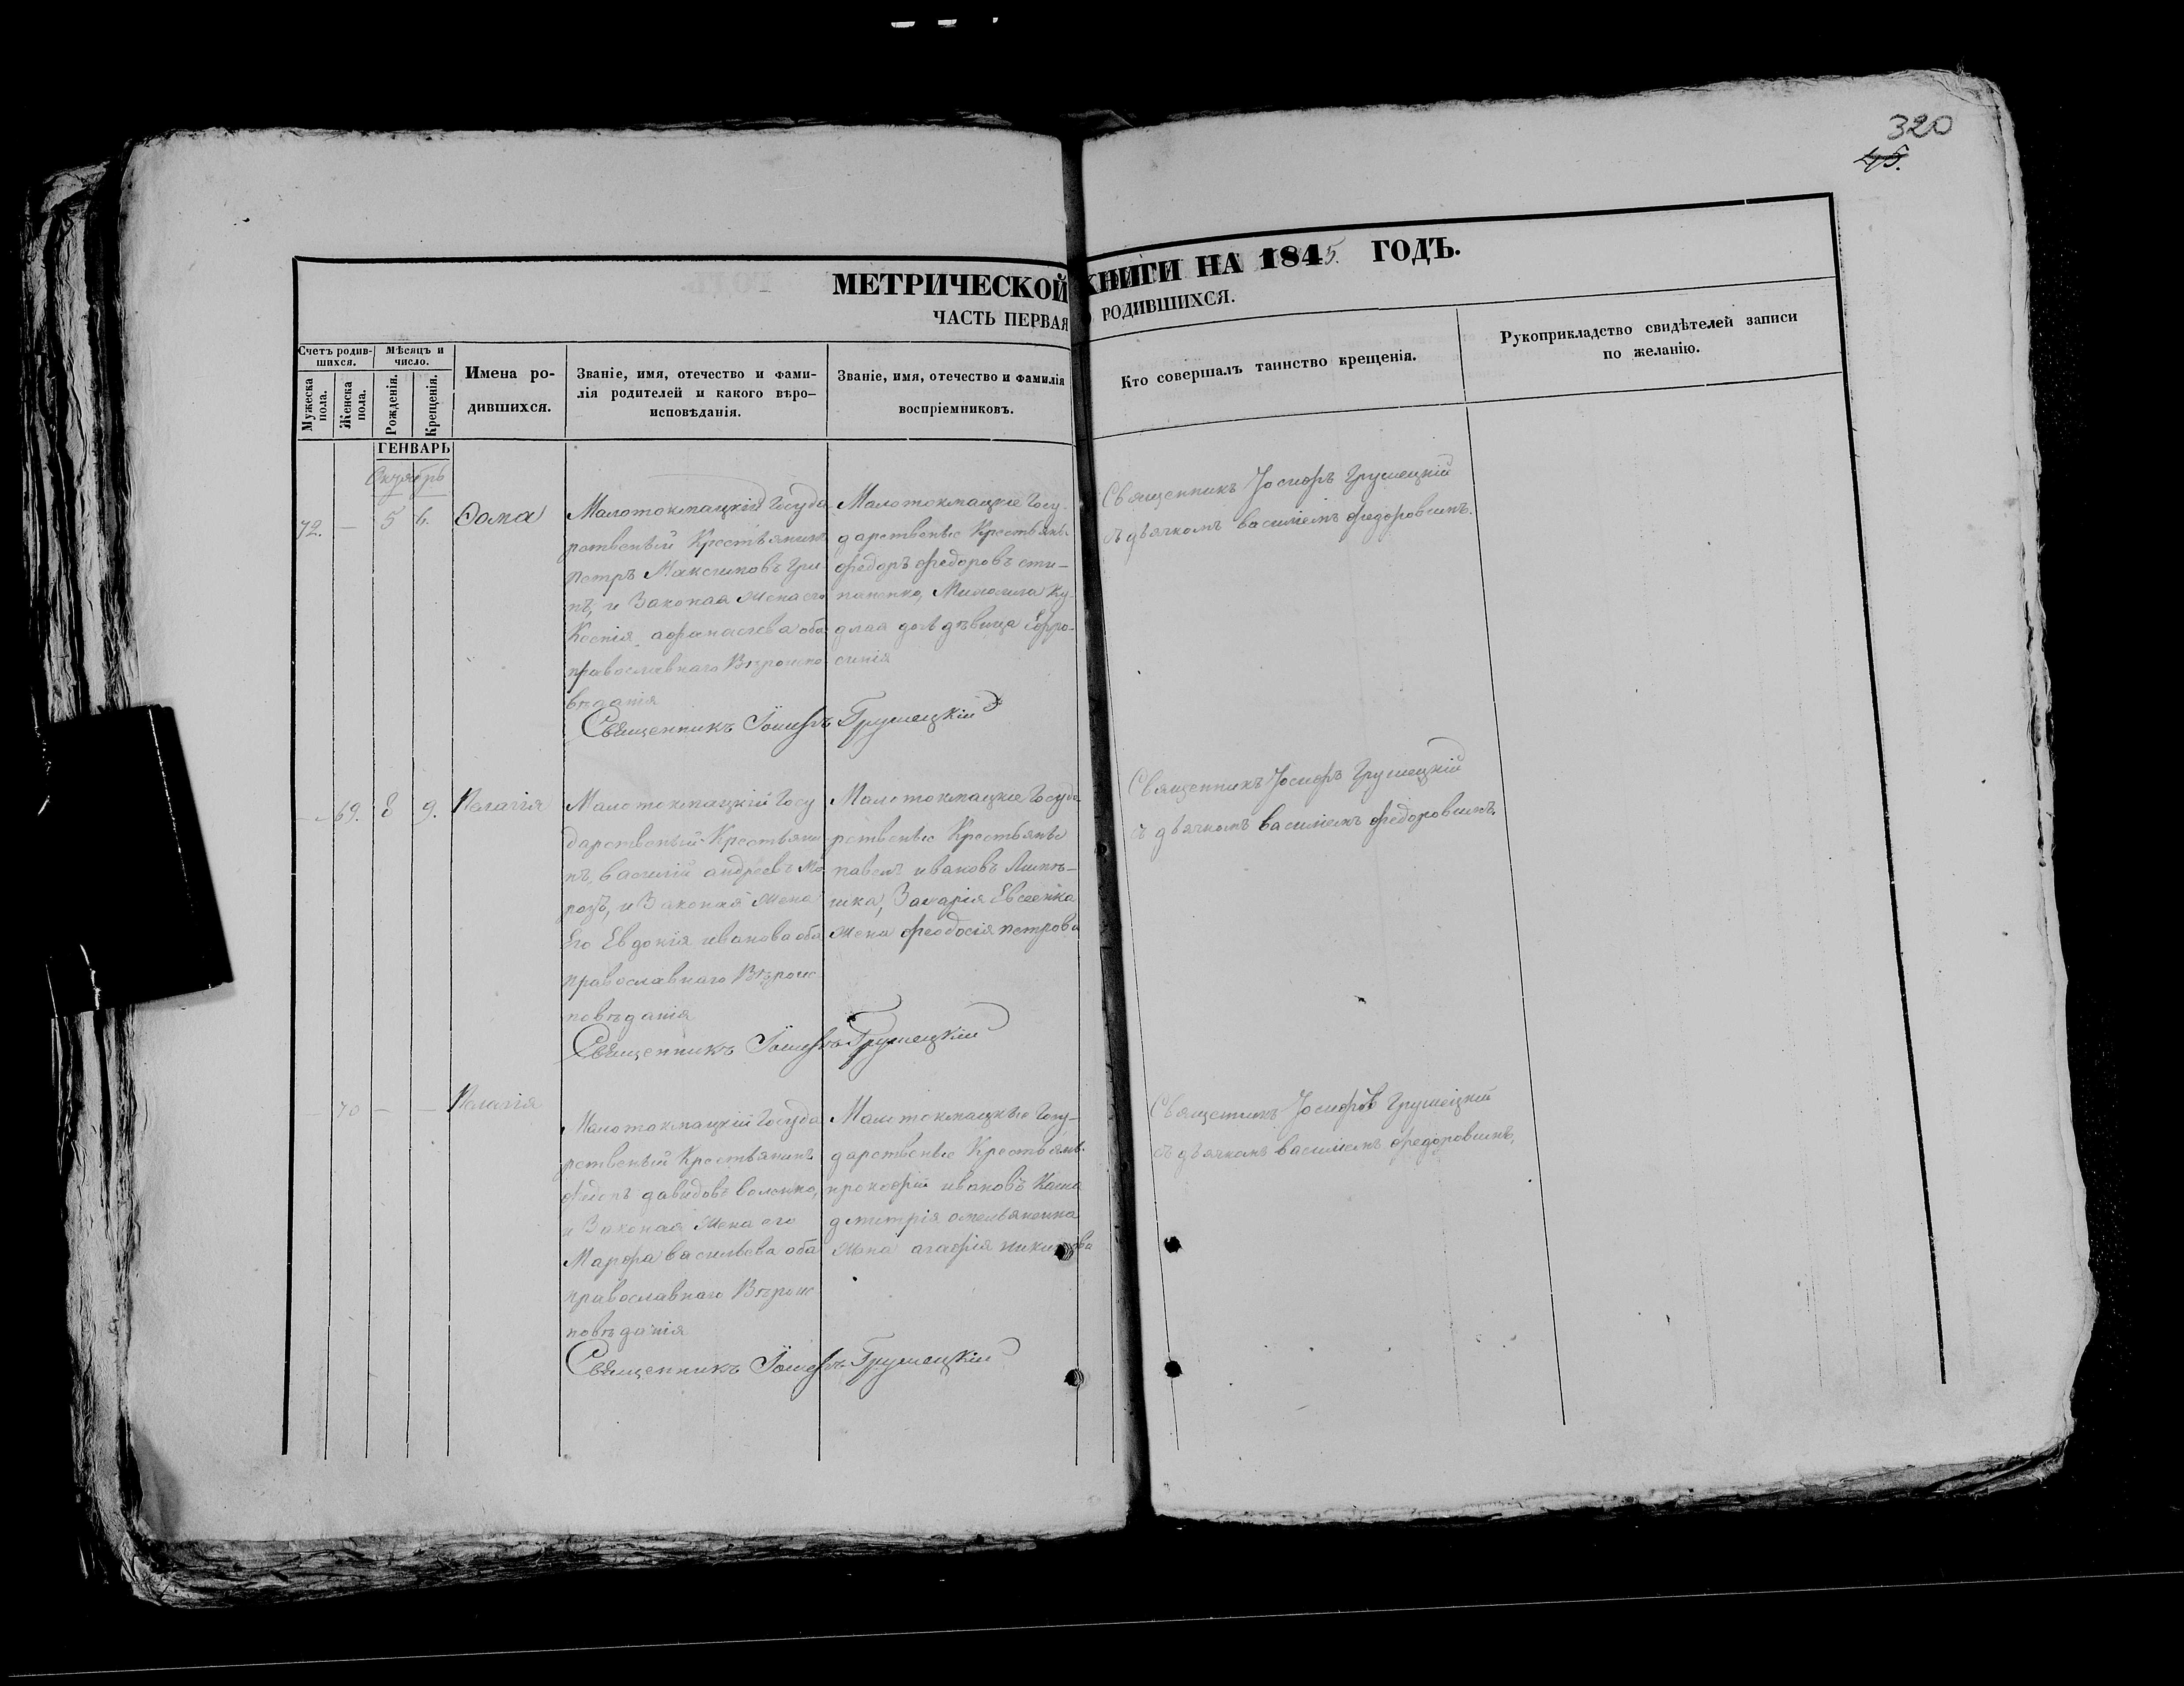 320
45.
МЕТРИЧЕСКОЙ КНИГИ НА 1845. ГОДЪ.
ЧАСТЬ ПЕРВАЯ О РОДИВШИХСЯ.
Счетъ родив-
шихся.
Мужеска пола.
Женска пола.
Мѣсяцъ и
число.
Рожденія.
Крещенія.
Имена ро-
дившихся.
Званіе, имя, отечество и фами-
лія родителей и какого вѣро-
исповѣданія.
Званіе, имя, отечество и фамилія
воспріемниковъ.
Кто совершалъ таинство крещенія.
Рукоприкладство свидѣтелей записи
по желанію.
ГЕНВАРЬ
Октябрь
72. — 5 6. Ѳома
Малотокмацкій Госуда
рственый Крестьянинъ
петръ Максимовъ Гри-
нъ, и Законая жена его
Ксенія афанасиева оба
православнаго Вѣроиспо
вѣданія
Малотокмацкіе Госу-
дарственые Крестьяне
федоръ федоровъ сти-
паненко, дочь дѣвица Ефро-
синія
Священникъ Іосифъ Грушецкій
съ дьячкомъ василіемъ федоровымъ.
Священникъ Іосифъ Грушецкій
— 69. 8 9. Пелагія
Малотокмацкій Госу
дарственый Крестьяни
нъ, василій андреевъ Мо
розъ, и Законая жена
Его Евдокія иванова оба
православнаго Вѣроис
повѣданія
Малотокмацкіе Госуда
рственые Крестьяне
павелъ ивановъ
Захарія Евсеенка
жена феодосія петрова
Священникъ Іосифъ Грушецкій
съ дьячкомъ василіемъ федоровымъ.
Священникъ Іосифъ Грушецкій
— 70 — — Пелагія
Малотокмацкій Госуда
рственый Крестьянинъ
давидовъ
и Законая жена его
Марфа васильева оба
православнаго Вѣроис
повѣданія
Малотокмацкые Госу-
дарственые Крестьяне
прокофій ивановъ Каша
дмитрія омельяненка
жена агафія никитова
Священникъ Іосифъ Грушецкій
съ дьячкомъ василіемъ федоровымъ,
Священникъ Іосифъ Грушецкій